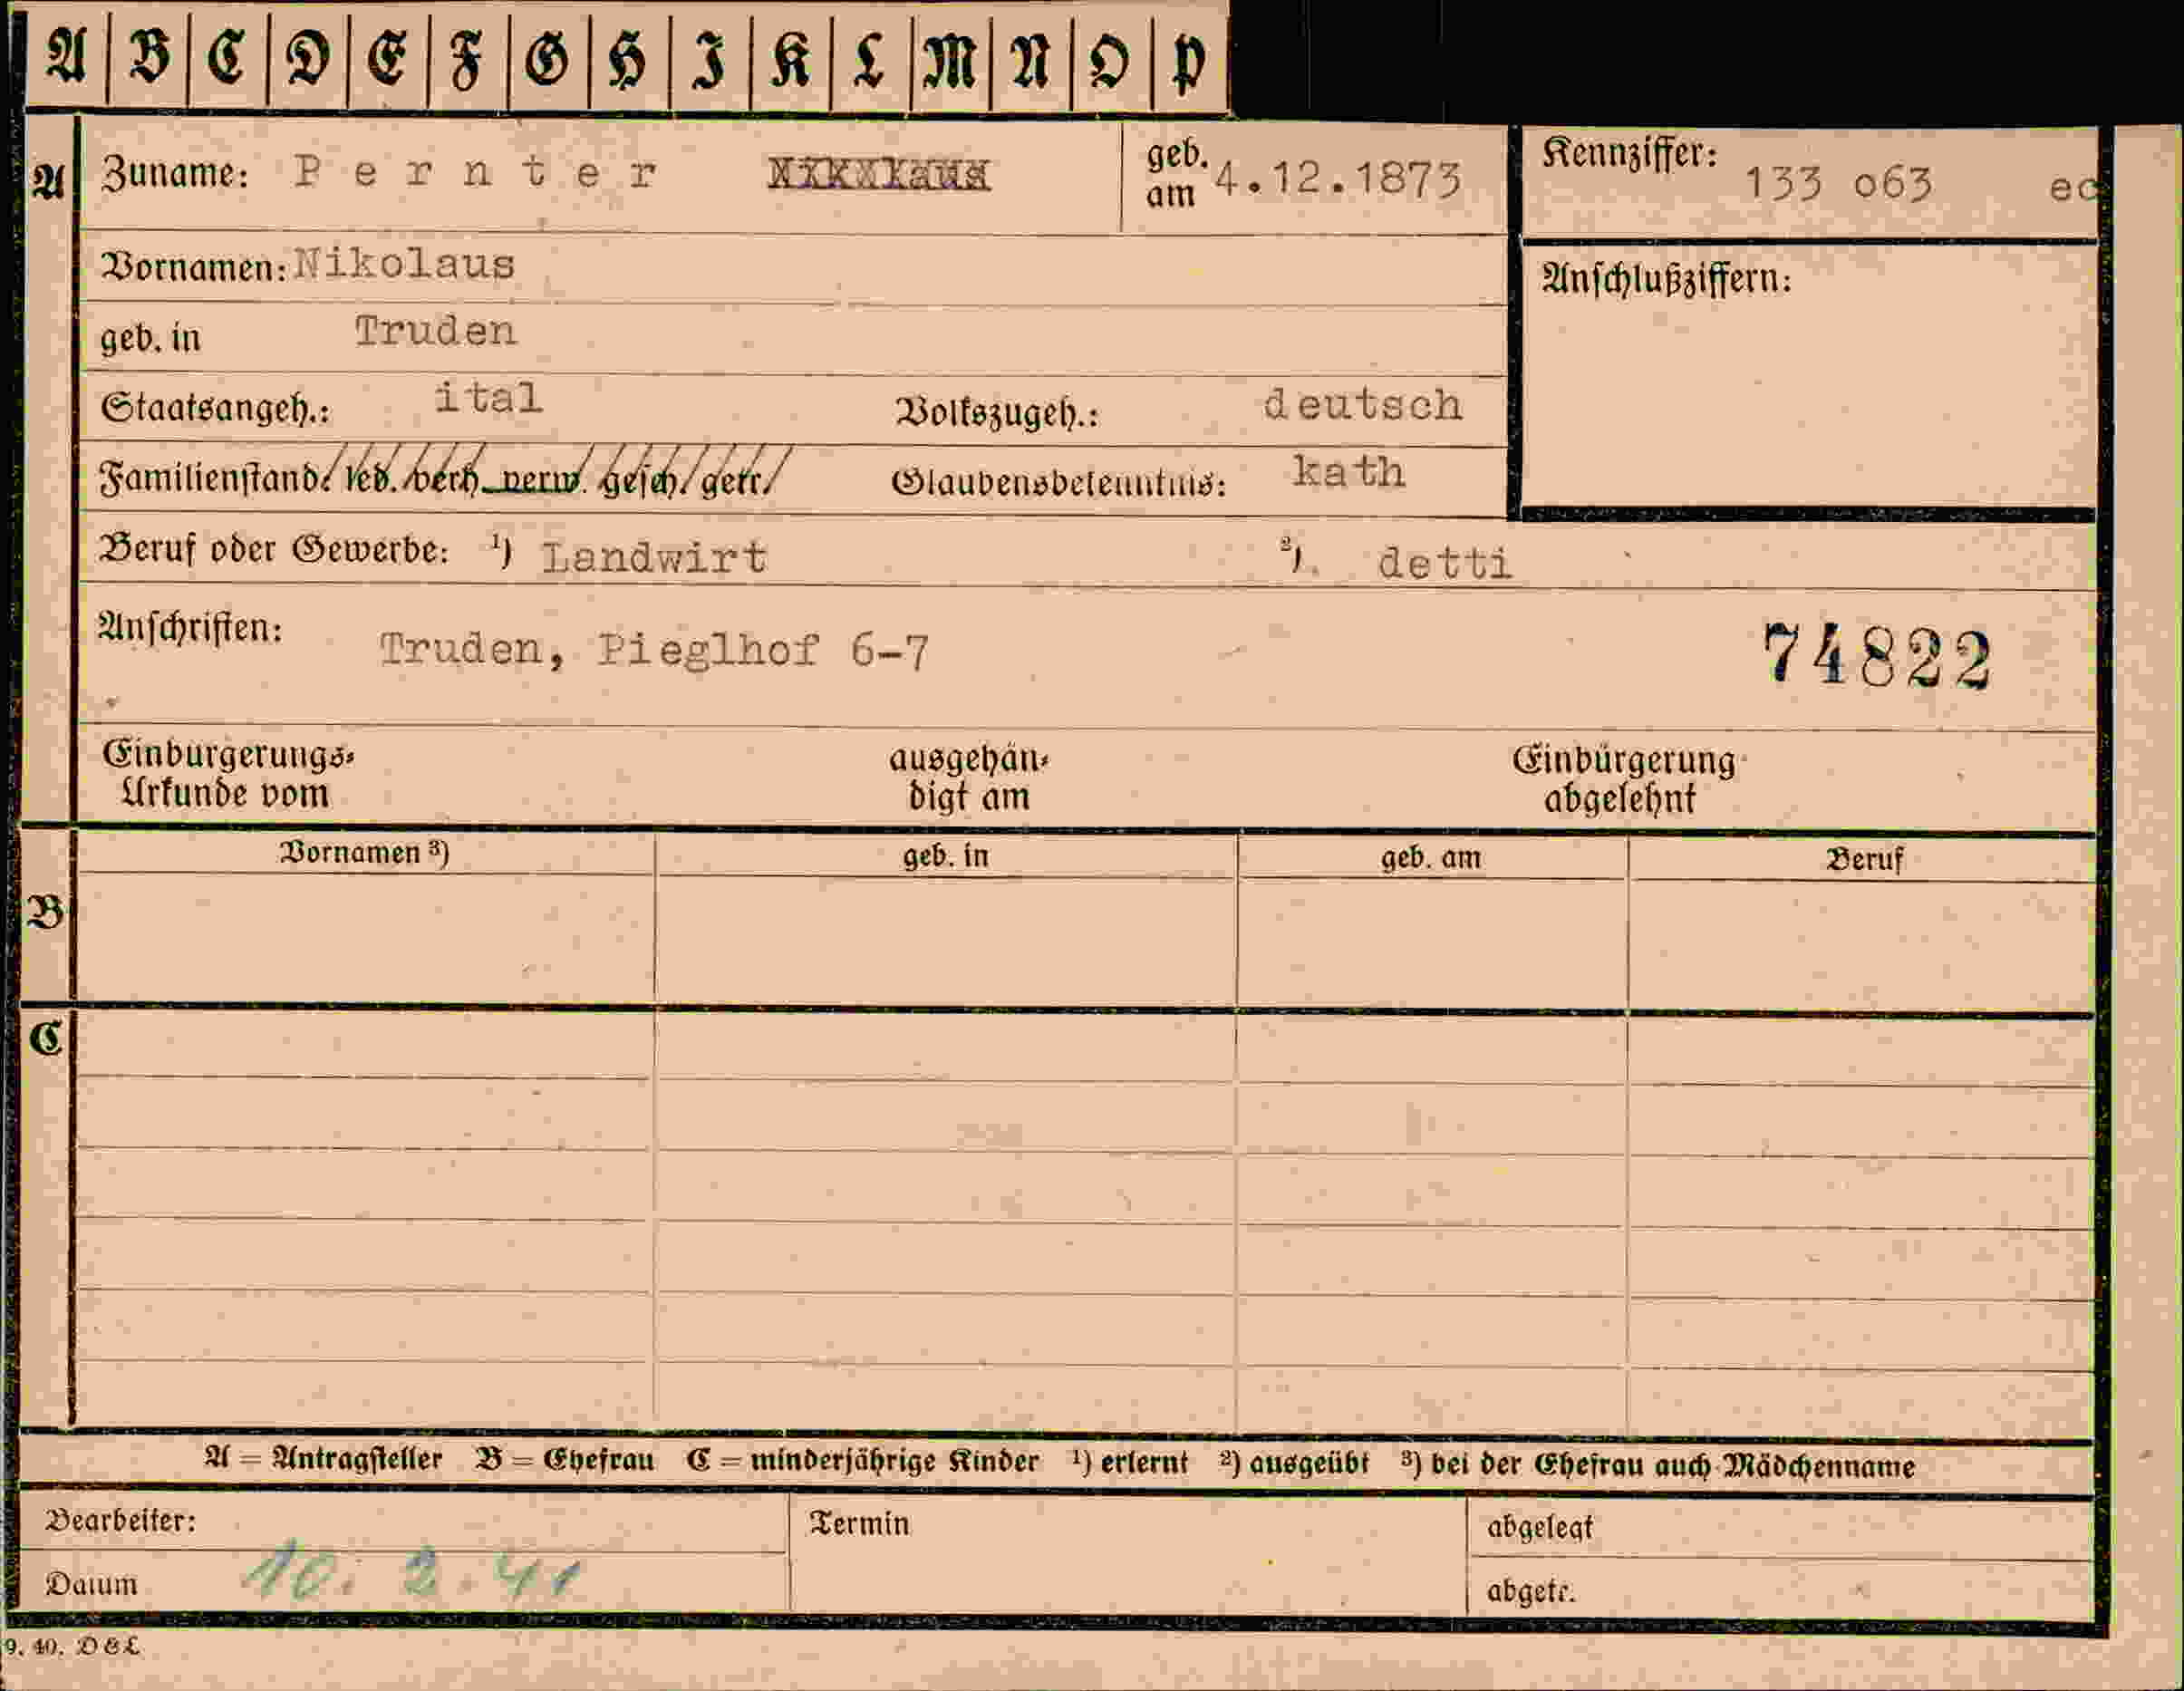 A B C D E F G H I K L M N O P
A Zuname: Pernter Nikolaus geb. am 4.12.1873 Kennziffer: 133 o63 ec
Vornamen: Nikolaus Anschlußziffern:
geb. in Truden
Staatsangeh.: ital Volkszugeh.: deutsch
Familienstand: led. verh. verw. gesch. getr. Glaubensbekenntnis: kath
Beruf oder Gewerbe: ¹) Landwirt ²). detti
Anschriften: Truden, Pieglhof 6-7 74822
Einbürgerungs- ausgehän- Einbürgerung
Urkunde vom digt am abgelehnt
Vornamen ³) geb. in geb. am Beruf
B
C
A = Antragsteller B = Ehefrau C = minderjährige Kinder ¹) erlernt ²) ausgeübt ³) bei der Ehefrau auch Mädchenname
Bearbeiter: Termin abgelegt
Datum 10. 2. 41 abgetr.
9. 40. D&L